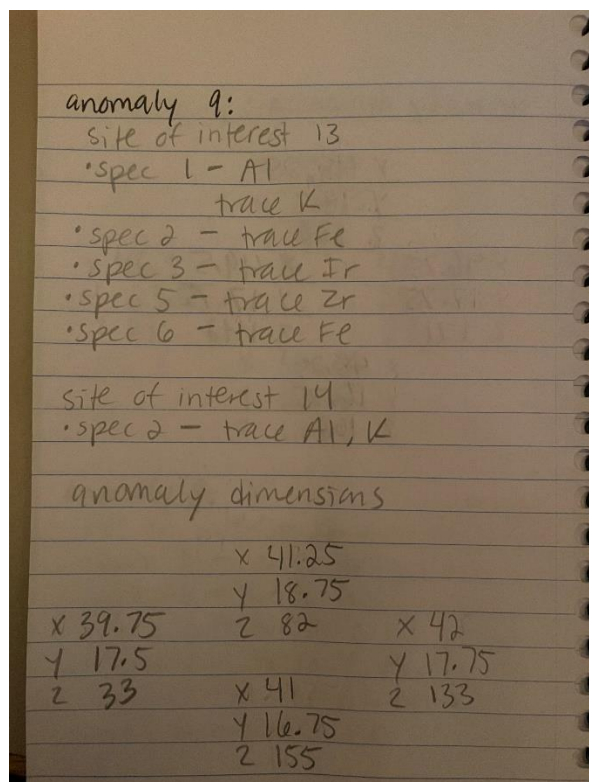 anomaly 9:
site of interest 13
•spec 1 - Al
trace K
•spec 2 - trace Fe
•spec 3 - trace Ir
•spec 5 - trace Zr
•spec 6 - trace Fe
site of interest 14
•spec 2 - trace Al, K
anomaly dimensions
x 41.25
y 18.75
z 82
x 39.75
y 17.5
z 33
x 42
y 17.75
z 133
x 41
y 16.75
z 155